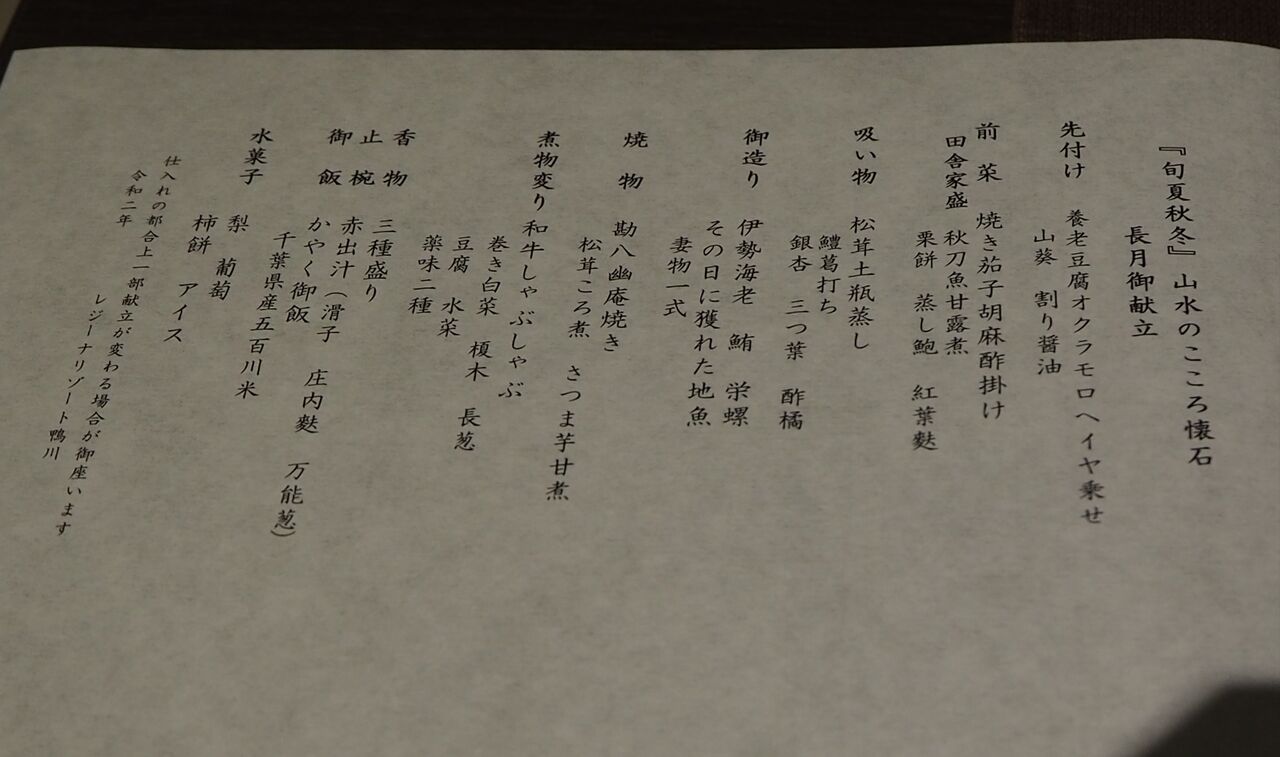 『旬夏秋冬』山水のこころ懐石
長月御献立
先付け 養老豆腐オクラモロヘイヤ乗せ
山葵 割り醤油
前菜 焼き茄子胡麻酢掛け
田舎家盛 秋刀魚甘露煮
栗餅 蒸し鮑 紅葉麩
吸い物 松茸土瓶蒸し
鱧葛打ち
銀杏 三つ葉 酢橘
御造り 伊勢海老 鮪 栄螺
その日に獲れた地魚
妻物一式
焼物 勘八幽庵焼き
松茸ころ煮 さつま芋甘煮
煮物変り 和牛しゃぶしゃぶ
巻き白菜 榎木 長葱
豆腐 水菜
薬味二種
香物 三種盛り
止椀 赤出汁(滑子 庄内麩 万能葱)
御飯 かやく御飯
千葉県産五百川米
水菓子 梨 葡萄
柿餅 アイス
仕入れの都合上一部献立が変わる場合が御座います
令和二年 レジーナリゾート鴨川